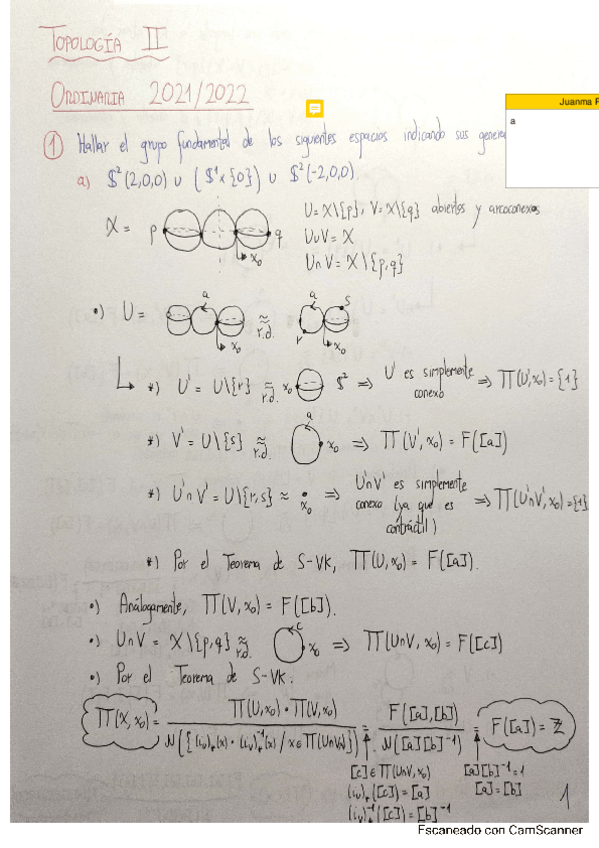 TOPOLOGÍA II
ORDINARIA 2021/2022
Juanma
a
① Hallar el grupo fundamental de los siguientes espacios indicando sus genera
a) $²(2,0,0) ∪ ($¹×{0}) ∪ $²(-2,0,0).
X = p q x₀
U = X\{p}, V = X\{q} abiertos y arcoconexos
U∪V = X
U∩V = X\{p,q}
•) U = a x₀ ≈ r.d. a s r x₀
*) U' = U\{r} ≈ r.d. x₀ $² ⇒ U' es simplemente conexo ⇒ Π(U',x₀) = {1}
*) V' = U\{s} ≈ r.d. a x₀ ⇒ Π(V',x₀) = F([a])
*) U'∩V' = U\{r,s} ≈ x₀ ⇒ U'∩V' es simplemente conexo (ya que es contráctil) ⇒ Π(U'∩V',x₀) = {1}
*) Por el Teorema de S-VK, Π(U,x₀) = F([a]).
•) Análogamente, Π(V,x₀) = F([b]).
•) U∩V = X\{p,q} ≈ r.d. c x₀ ⇒ Π(U∩V,x₀) = F([c])
•) Por el Teorema de S-VK:
Π(X,x₀) = Π(U,x₀) * Π(V,x₀) / N({(iᵤ)₊(x)·(iᵥ)₊⁻¹(x) / x∈Π(U∩V)}) = F([a],[b]) / N([a][b]⁻¹) = F([a]) = ℤ
[c] ∈ Π(U∩V,x₀)
(iᵤ)₊([c]) = [a]
(iᵥ)₊⁻¹([c]) = [b]⁻¹
[a][b]⁻¹ = 1
[a] = [b]
1
Escaneado con CamScanner